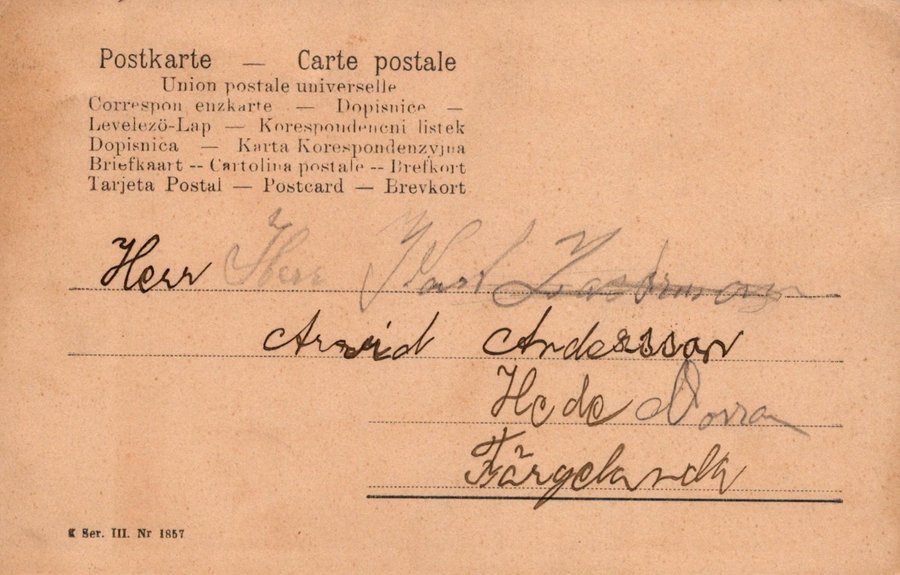 Postkarte — Carte postale
Union postale universelle
Correspon enzkarte — Dopisnice —
Levelezö-Lap — Korespondencni listek
Dopisnica — Karta Korespondenzyjna
Briefkaart -- Cartolina postale -- Brefkort
Tarjeta Postal — Postcard — Brevkort
Herr Herr
Arvid Andersson
Hede
Färgelanda
Ser. III. Nr 1857